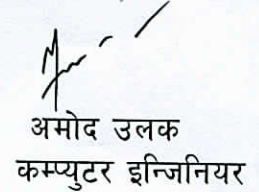 अमोद उलक
कम्प्युटर इन्जिनियर